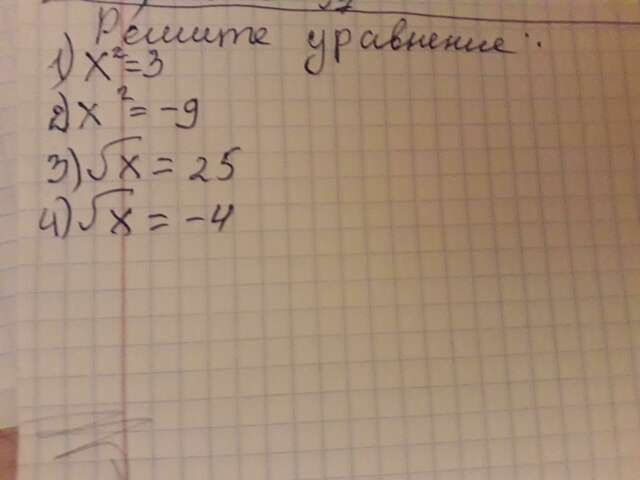 Решите уравнение:
1) x² = 3
2) x² = -9
3) √x = 25
4) √x = -4